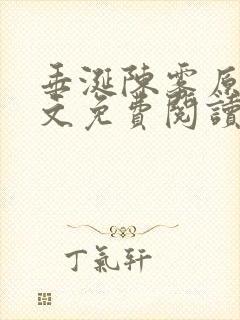 垂涎陳雾原
文免費閱讀
丁氣軒